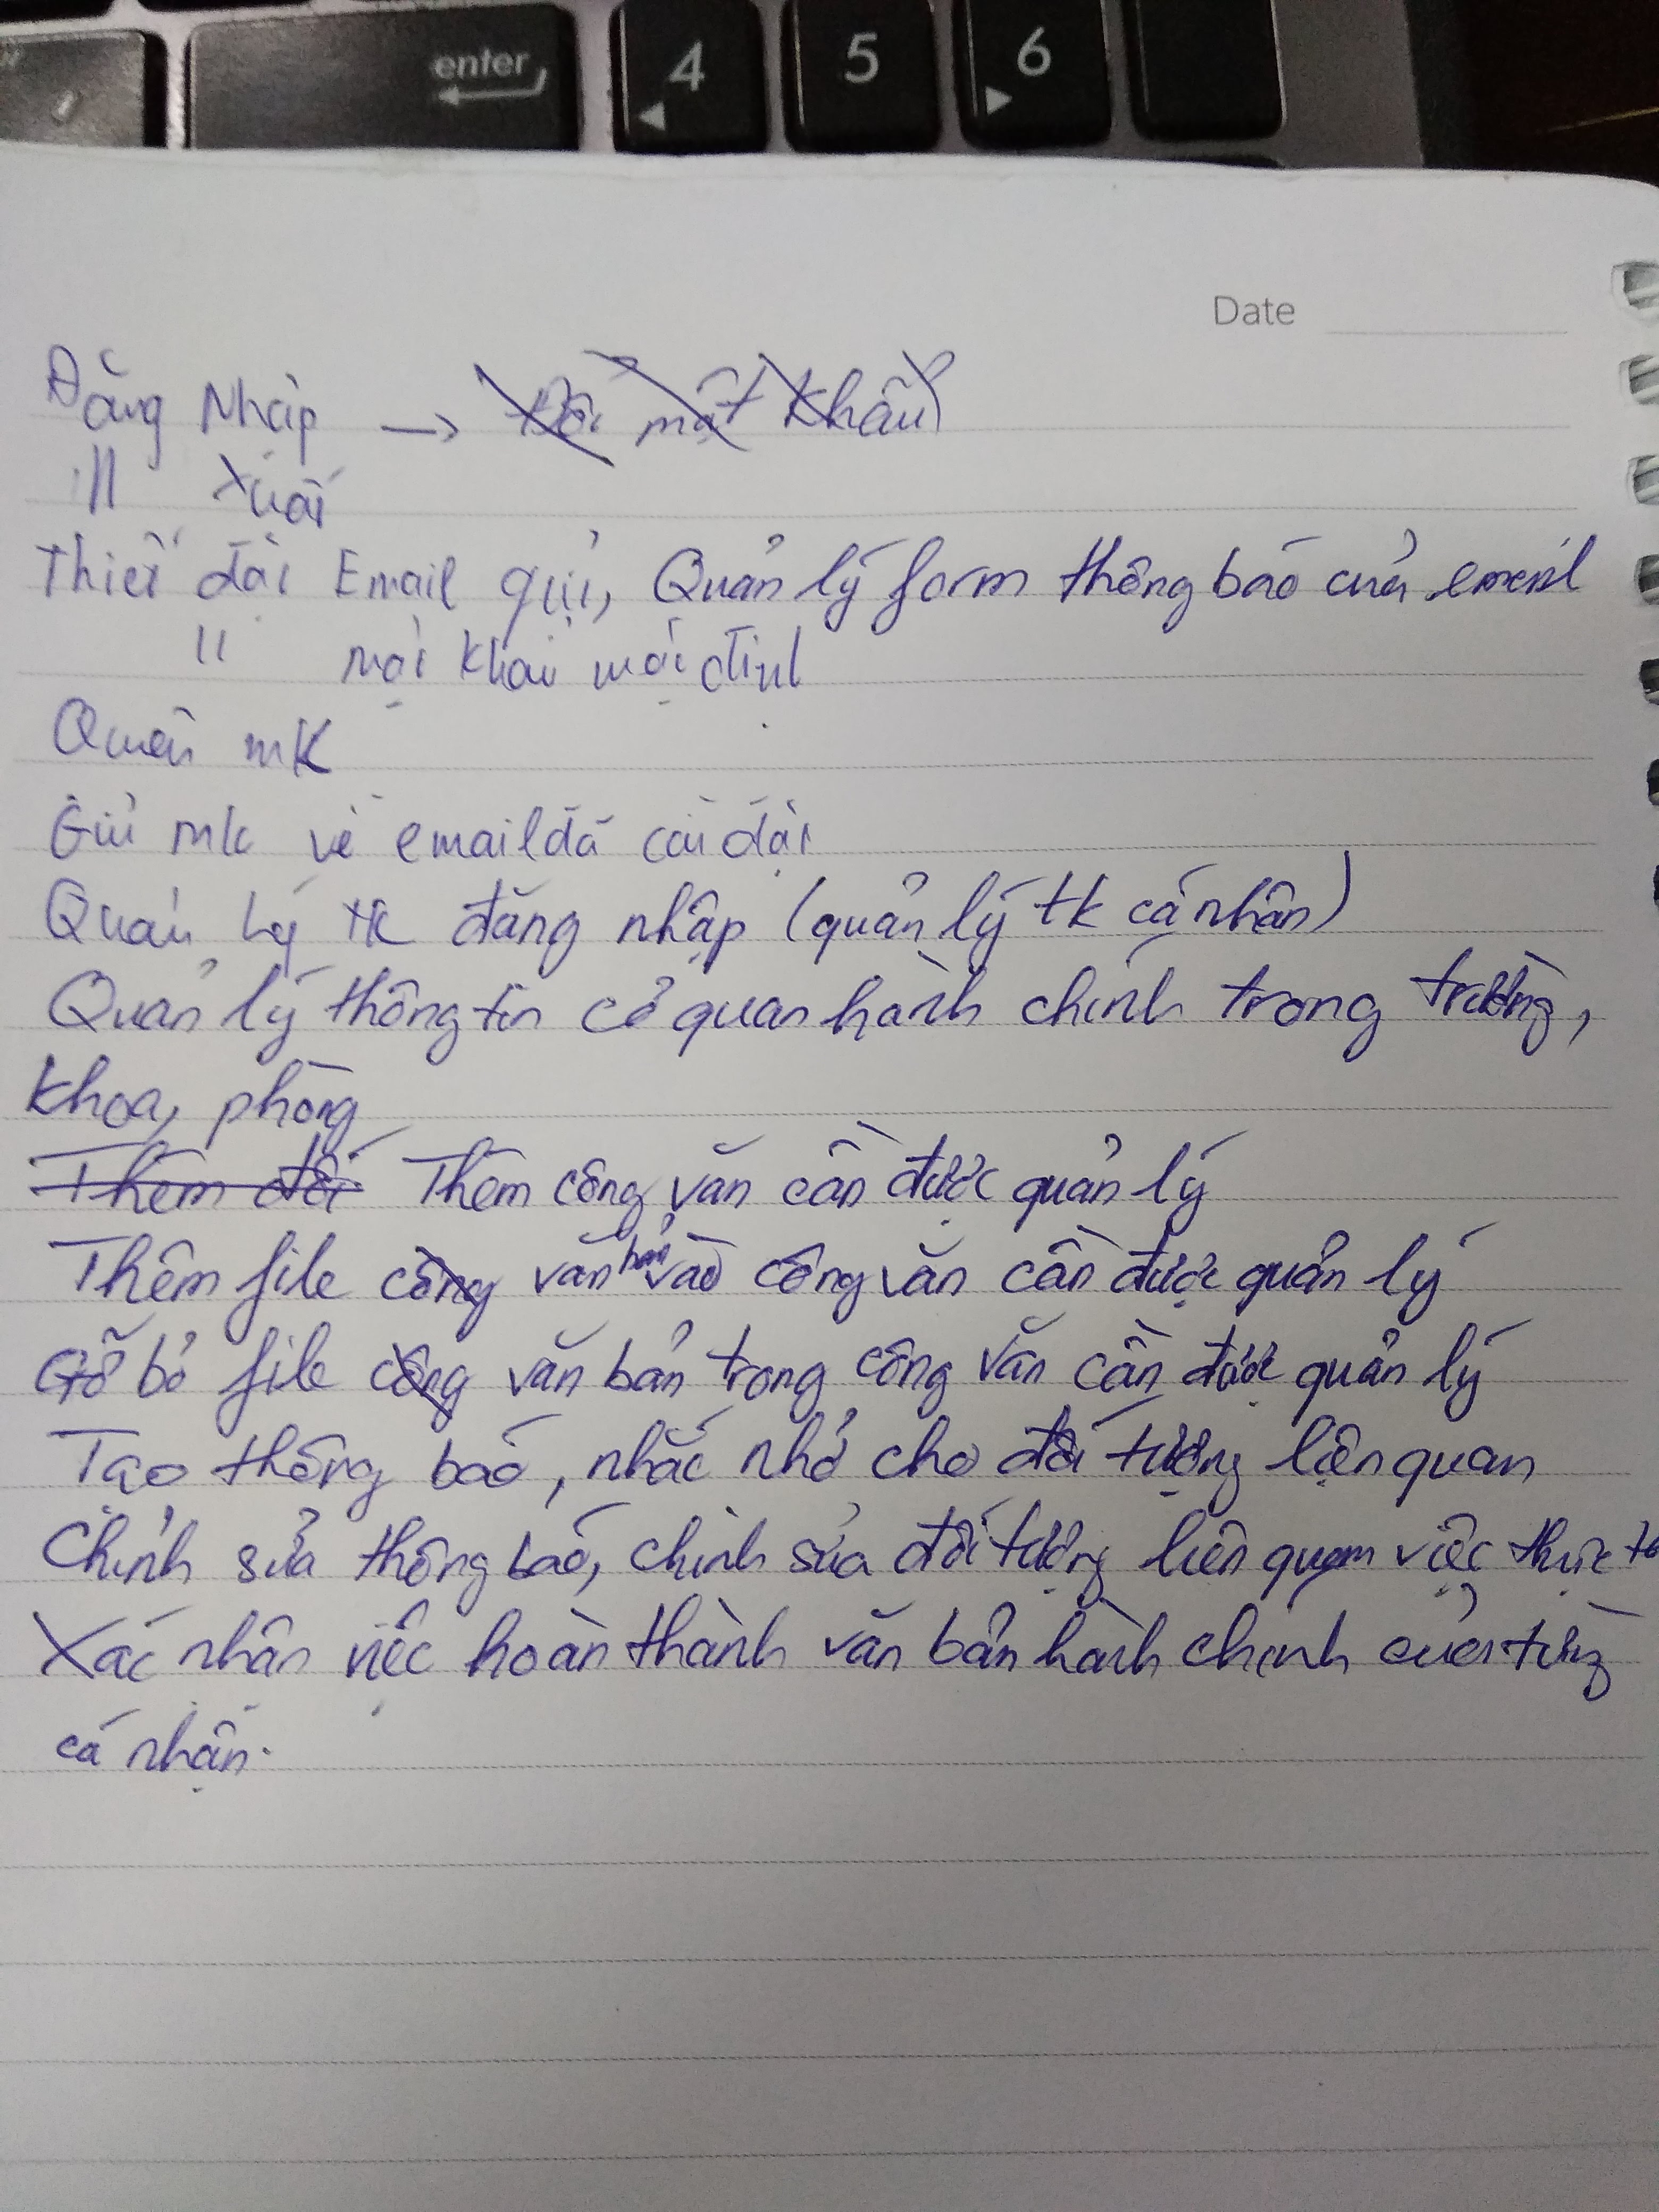 enter
4
5
6
Date
Đăng Nhập → Đổi mật khẩu
" Xuất
Thiết đặt Email gửi, Quản lý form thông báo của email
" mật khẩu mặc định
Quên mk
Gửi mk về email đã cài đặt
Quản lý tk đăng nhập (quản lý tk cá nhân)
Quản lý thông tin cơ quan hành chính trong trường,
khoa, phòng
Thêm đối Thêm công văn cần được quản lý
Thêm file công văn bản vào công văn cần được quản lý
Gỡ bỏ file công văn bản trong công văn cần được quản lý
Tạo thông báo, nhắc nhở cho đối tượng liên quan
Chỉnh sửa thông báo, chỉnh sửa đối tượng liên quan việc thực
Xác nhận việc hoàn thành văn bản hành chính của từng
cá nhận.